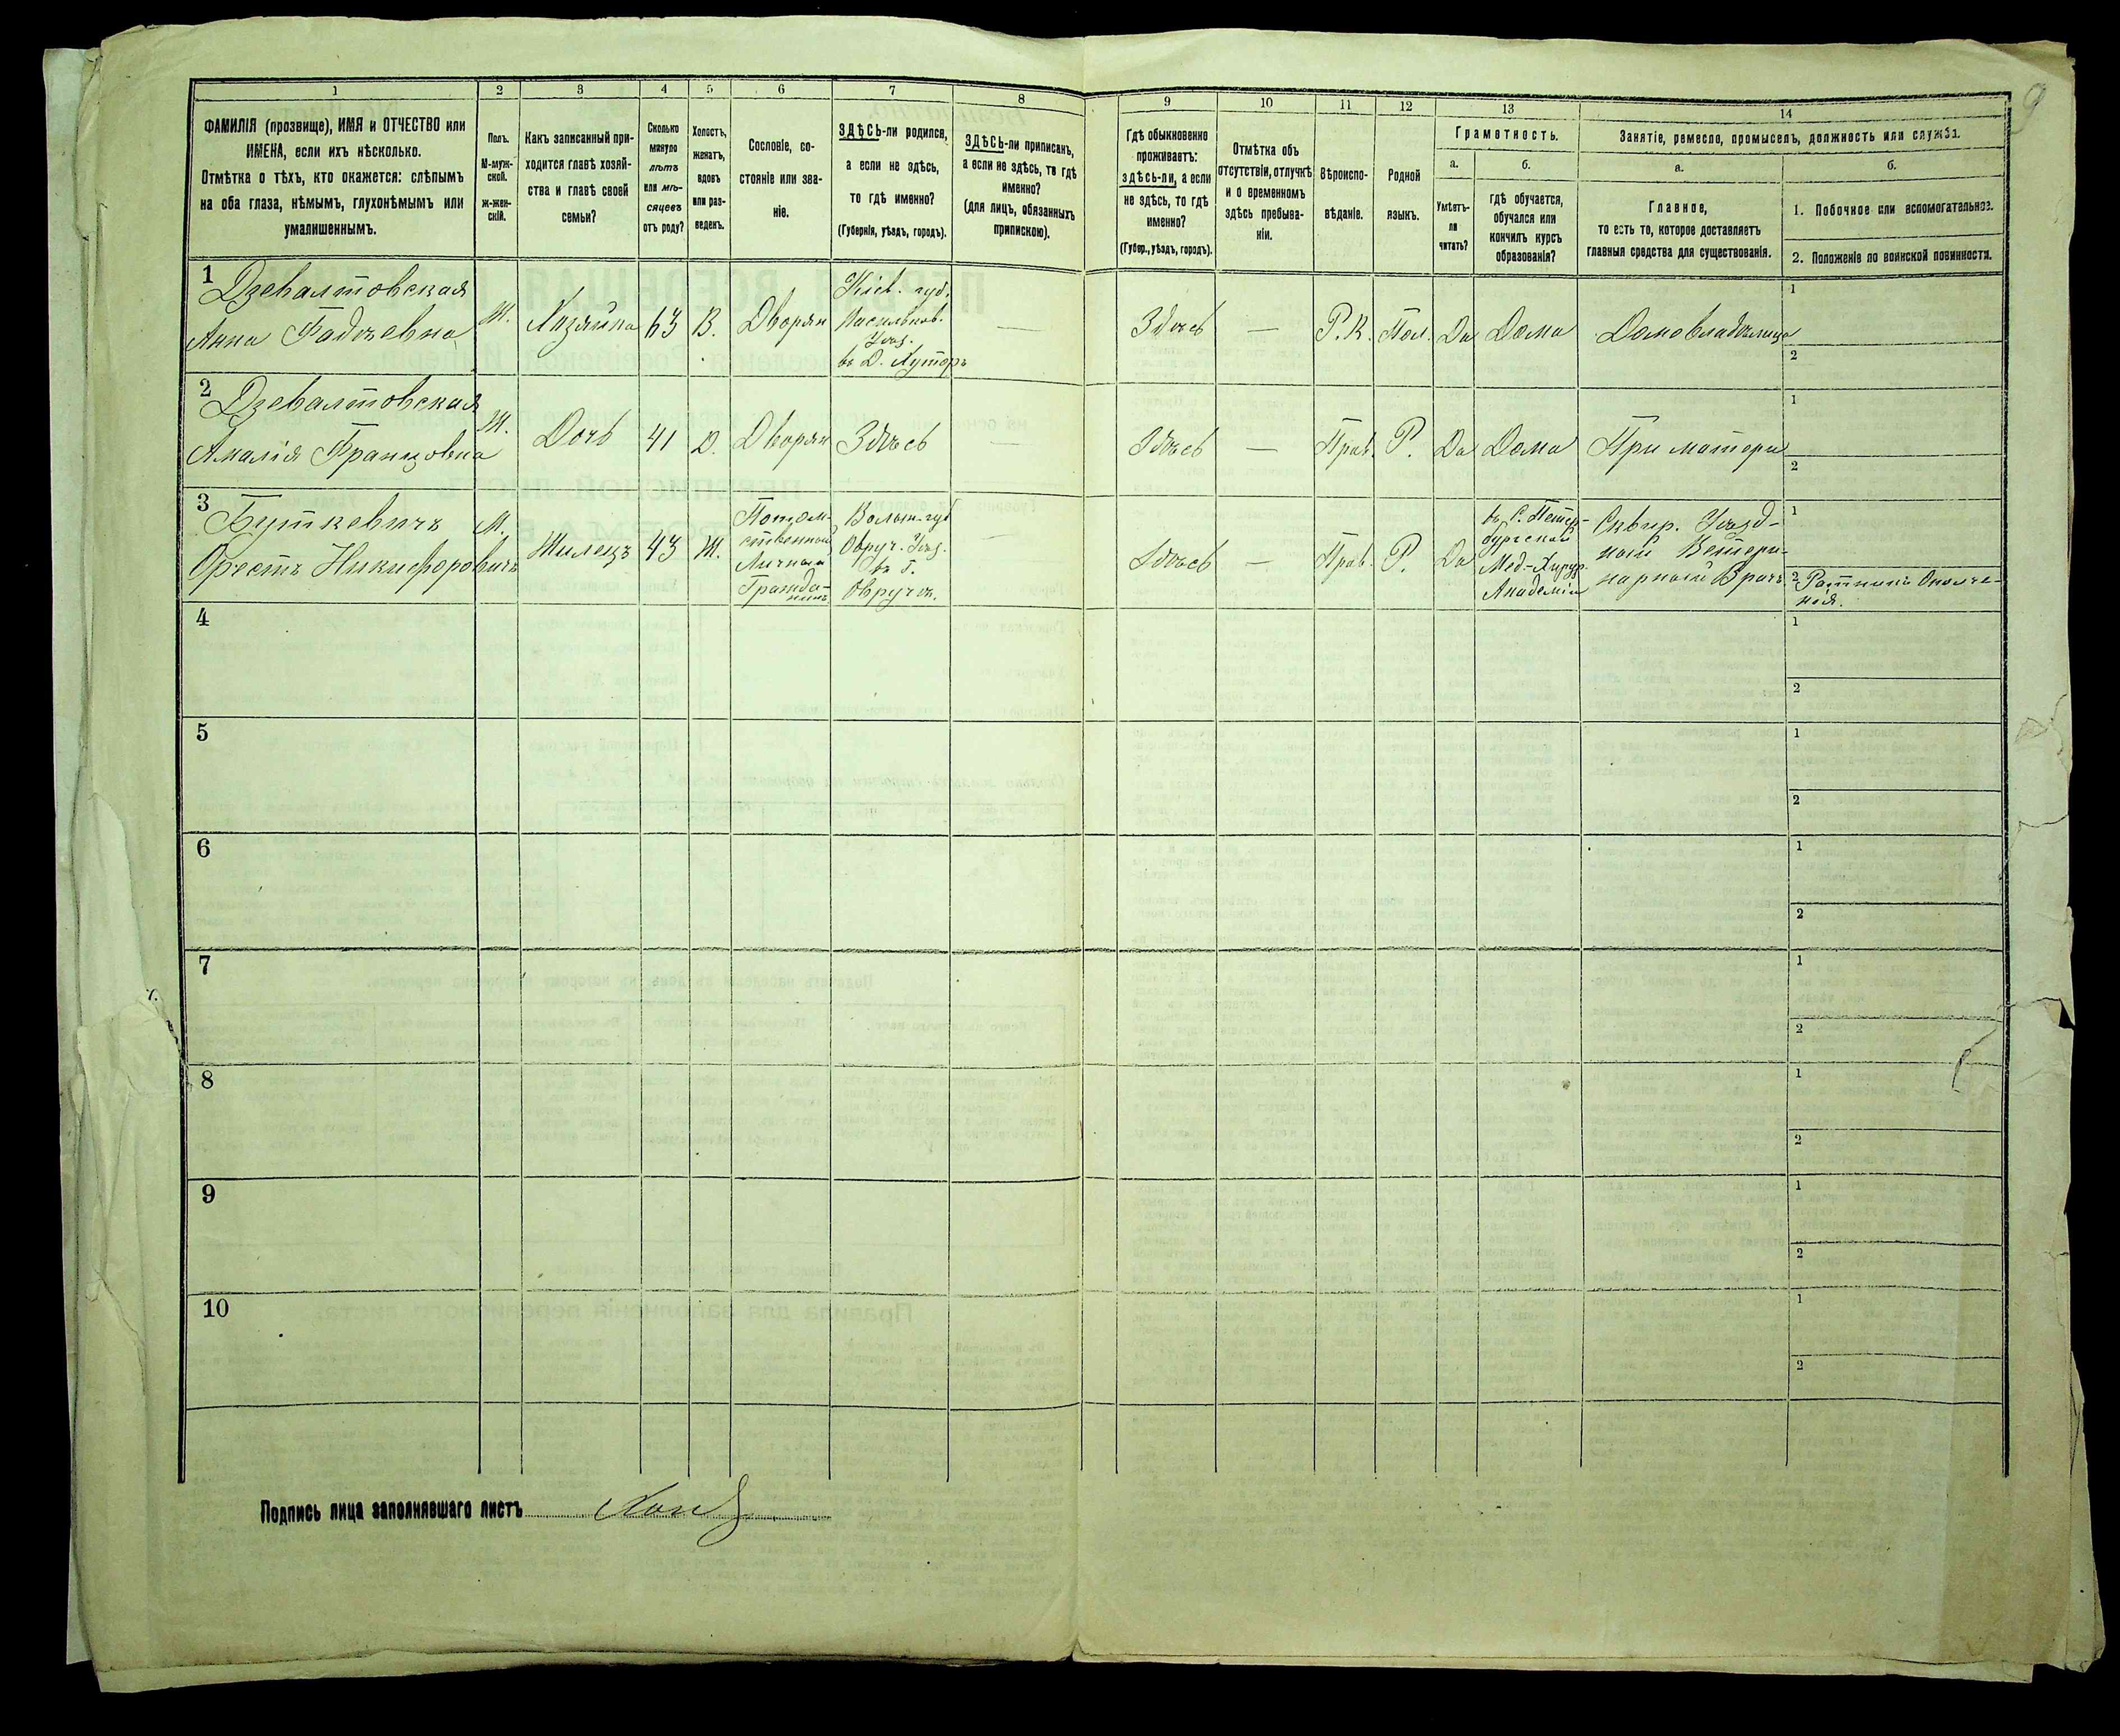 1 2 3 4 5 6 7 8 9 10 11 12 13 14
ФАМИЛІЯ (прозвище), ИМЯ и ОТЧЕСТВО или
ИМЕНА, если ихъ нѣсколько.
Отмѣтка о тѣхъ, кто окажется: слѣпымъ
на оба глаза, нѣмымъ, глухонѣмымъ или
умалишеннымъ.
Полъ.
М-муж-
ской.
ж-жен-
скій.
Какъ записанный при-
ходится главѣ хозяй-
ства и главѣ своей
семьи?
Сколько
минуло
лѣтъ
или мѣ-
сяцевъ
отъ роду?
Холостъ,
женатъ,
вдовъ
или раз-
веденъ.
Сословіе, со-
стояніе или зва-
ніе.
ЗДѢСЬ-ли родился,
а если не здѣсь,
то гдѣ именно?
(Губернія, уѣздъ, городъ).
ЗДѢСЬ-ли приписанъ,
а если не здѣсь, то гдѣ
именно?
(для лицъ, обязанныхъ
припискою).
Гдѣ обыкновенно
проживаетъ:
здѣсь-ли, а если
не здѣсь, то гдѣ
именно?
(Губер., уѣздъ, городъ).
Отмѣтка объ
отсутствіи, отлучкѣ
и о временномъ
здѣсь пребыва-
ніи.
Вѣроиспо-
вѣданіе.
Родной
языкъ.
Грамотность.
а.
Умѣетъ-
ли
читать?
б.
гдѣ обучается,
обучался или
кончилъ курсъ
образованія?
Занятіе, ремесло, промыселъ, должность или служба.
а.
Главное,
то есть то, которое доставляетъ
главныя средства для существованія.
б.
1. Побочное или вспомогательное.
2. Положеніе по воинской повинности.
1
Дзевалтовская
Анна Фадѣевна
Ж.
Хозяйка
63
В.
Дворян
Кіев. губ.
Васильков.
Уѣзд.
въ Д. Хуторъ
—
Здѣсь
—
Р. К.
Пол.
Да
Дома
Домовладѣлица
1
2
2
Дзевалтовская
Амалія Францовна
Ж.
Дочь
41
Д.
Дворян
Здѣсь
—
Здѣсь
—
Прав.
Р.
Да
Дома
При матери
1
2
3
Буткевичъ
Орестъ Никифоровичъ
М.
Жилецъ
43
Ж.
Потом-
ственный
Гражда-
нинъ
Волын. губ
Овруч. Уѣзд.
въ Г.
Овручѣ.
—
Здѣсь
—
Прав.
Р.
Да
въ С. Петер-
бургской
Мед.-Хирур.
Академіи
Сквир. Уѣзд-
ный Ветери-
нарный Врачъ
1
2 Ратникъ Ополче-
нія.
4
1
2
5
1
2
6
1
2
7
1
2
8
1
2
9
1
2
10
1
2
Подпись лица заполнявшаго листъ
9